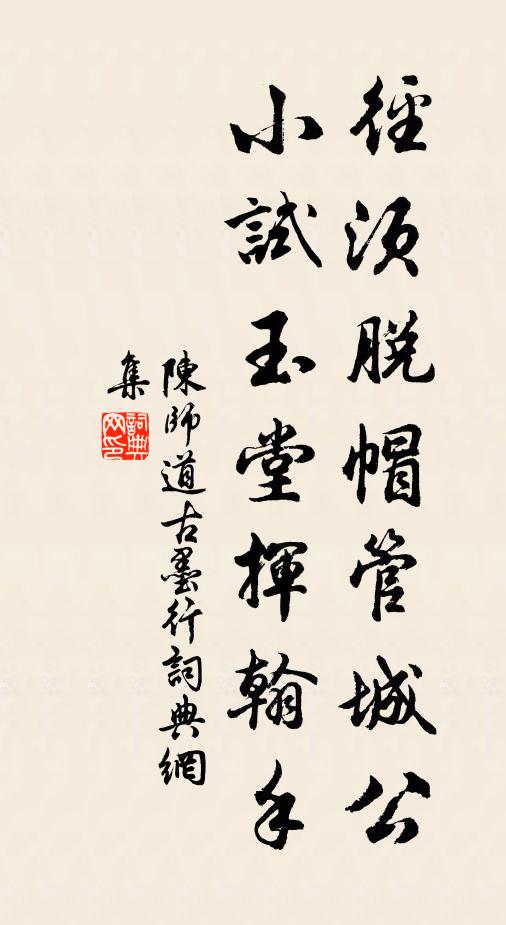 徑須脫帽管城公
小試玉堂揮翰手
陳師道古墨行詞典網
集
詞典網印